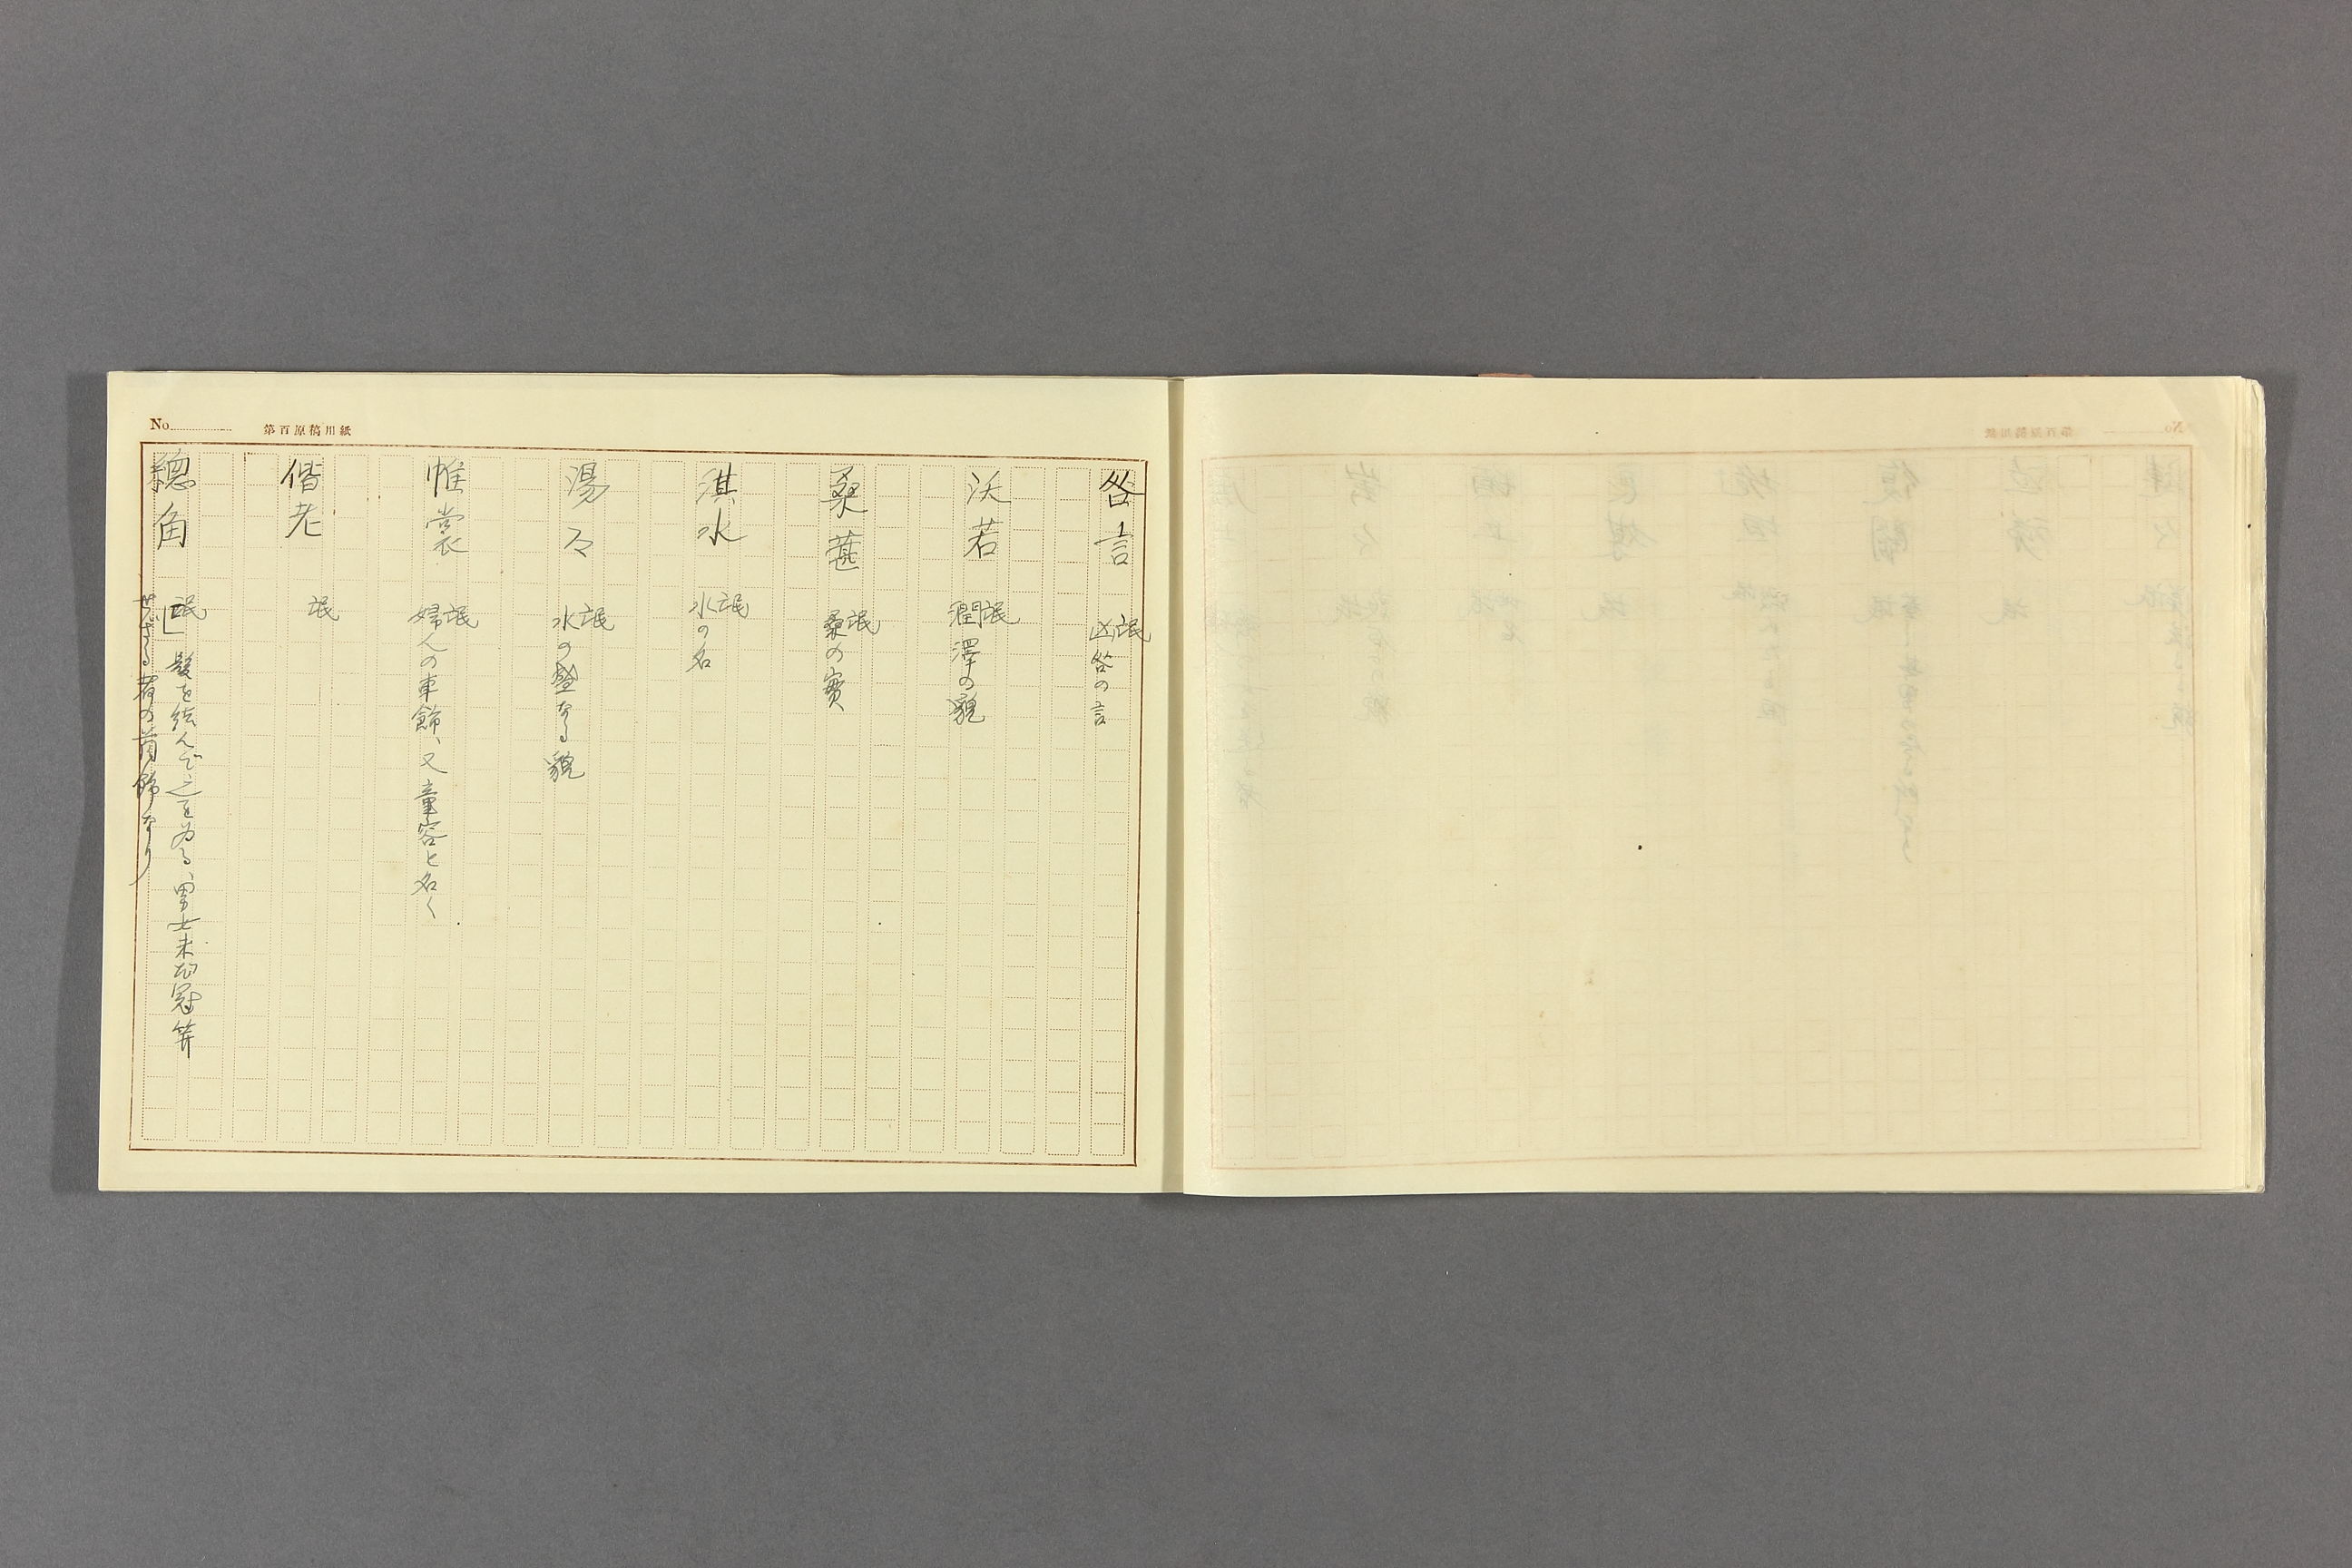 No
第百原稿用紙
咎言
氓
凶咎の言
沃若
氓
潤澤の貌
桑葚
氓
桑の實
淇水
氓
水の名
湯々
氓
水の盛なる貌
帷裳
氓
婦人の車飾、又童容と名く
偕老
氓
總角
氓
髮を結んで之を為る、男女未だ冠笄
せざる者の首飾なり